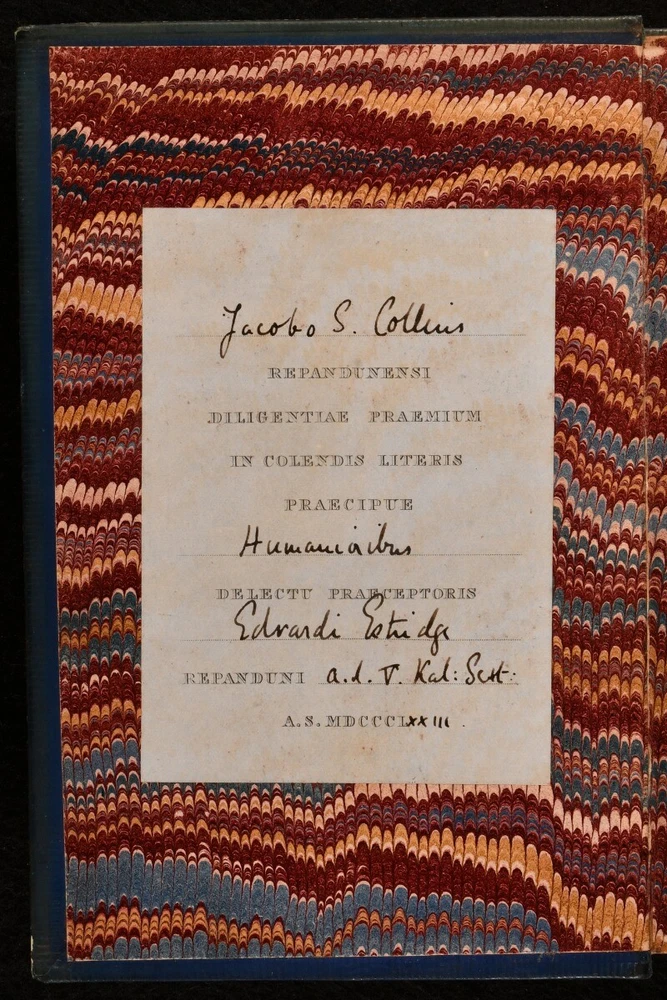 Jacobo S. Collins
REPANDUNENSI
DILIGENTIAE PRAEMIUM
IN COLENDIS LITERIS
PRAECIPUE
Humanioribus
DELECTU PRAECEPTORIS
Edvardi Estridge
REPANDUNI a.d. V. Kal: Sext:
A.S. MDCCCLXXIII.